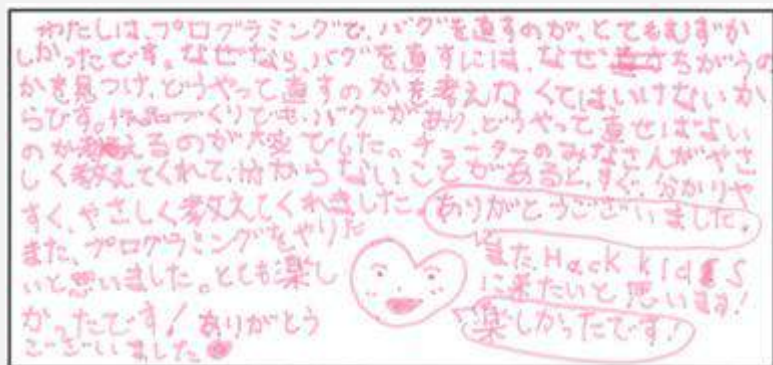 わたしは、プログラミングで、バグを直すのが、とてもむずか
しかったです。なぜなら、バグを直すには、なぜちがうの
かを見つけ、どうやって直すのかを考えなくてはいけないか
らです。作品づくりでも、バグがあり、どうやって直せばよい
のか考えるのが大変でした。チューターのみなさんがやさ
しく教えてくれて、分からないことがあると、すぐ、分かりや
すく、やさしく教えてくれました。ありがとうございました。
また、プログラミングをやりた
いと思いました。とても楽し
かったです！ありがとう
ございました
また、Hack kids
に来たいと思います！
楽しかったです！